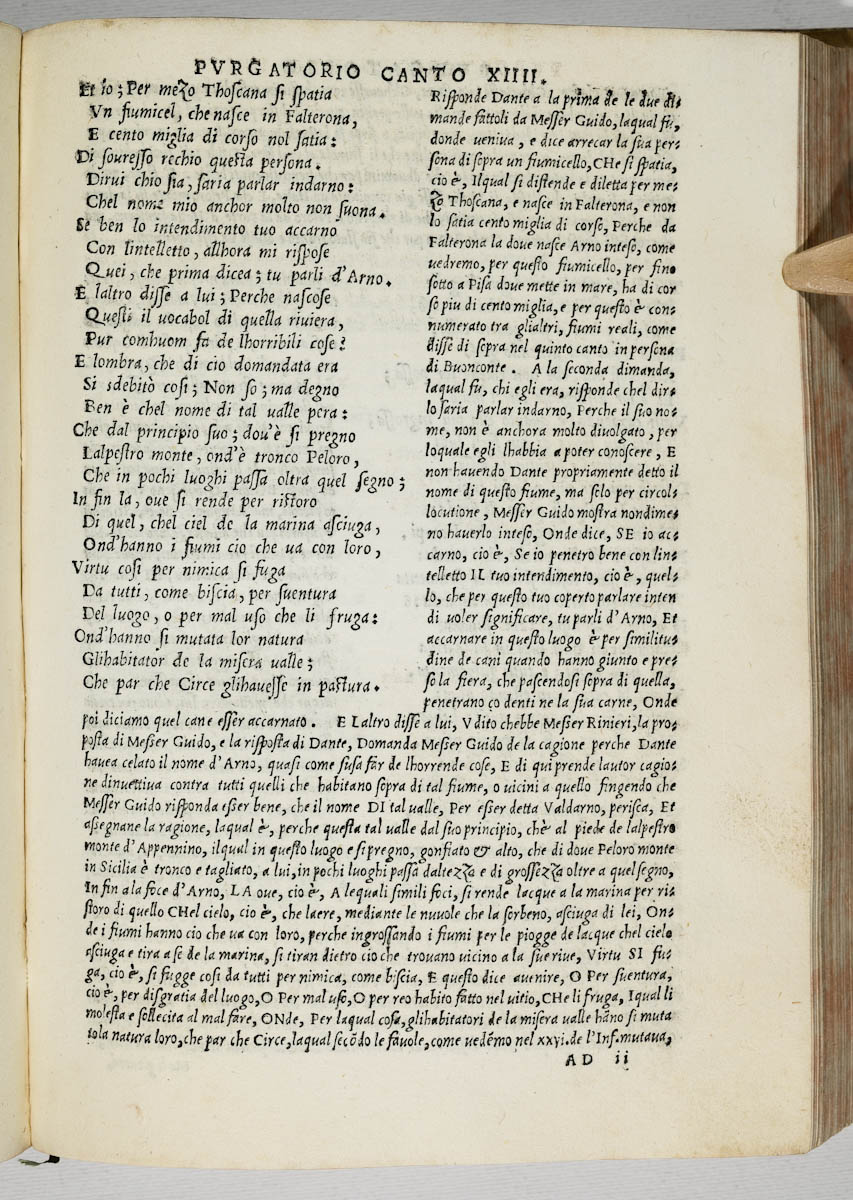 PVRGATORIO CANTO XIIII.
Et io; Per mezo Thoscana si spatia
Vn fiumicel, che nasce in Falterona,
E cento miglia di corso nol satia:
Di souresso rechio questa persona.
Dirui chio sia, saria parlar indarno:
Chel nome mio anchor molto non suona.
Se ben lo intendimento tuo accarno
Con lintelletto, allhora mi rispose
Quei, che prima dicea; tu parli d'Arno.
E laltro disse a lui; Perche nascose
Questi il uocabol di quella riuiera,
Pur comhuom fa de lhorribili cose?
E lombra, che di cio domandata era
Si sdebitò cosi; Non so; ma degno
Ben è chel nome di tal ualle pera:
Che dal principio suo; dou'è si pregno
Lalpestro monte, ond'è tronco Peloro,
Che in pochi luoghi passa oltra quel segno;
In fin la, oue si rende per ristoro
Di quel, chel ciel de la marina asciuga,
Ond'hanno i fiumi cio che ua con loro,
Virtu cosi per nimica si fuga
Da tutti, come biscia, per suentura
Del luogo, o per mal uso che li fruga:
Ond'hanno si mutata lor natura
Glihabitator de la misera ualle;
Che par che Circe glihauesse in pastura.
Risponde Dante a la prima de le due di=
mande fattoli da Messer Guido, laqual fu,
donde ueniua, e dice arrecar la sua per=
sona di sopra un fiumicello, CHe si spatia,
cio è, Ilqual si distende e diletta per me=
zo Thoscana, e nasce in Falterona, e non
lo satia cento miglia di corso, Perche da
Falterona la doue nasce Arno inteso, come
uedremo, per questo fiumicello, per fino
sotto a Pisa doue mette in mare, ha di cor
so piu di cento miglia, e per questo è con=
numerato tra glialtri, fiumi reali, come
disse di sopra nel quinto canto in persona
di Buonconte. A la seconda dimanda,
laqual fu, chi egli era, risponde chel dir=
lo saria parlar indarno, Perche il suo no=
me, non è anchora molto diuolgato, per
loquale egli lhabbia a poter conoscere, E
non hauendo Dante propriamente detto il
nome di questo fiume, ma solo per circol=
locutione, Messer Guido mostra nondime=
no hauerlo inteso, Onde dice, SE io ac=
carno, cio è, Se io penetro bene con lin=
telletto IL tuo intendimento, cio è, quel=
lo, che per questo tuo coperto parlare inten
di uoler significare, tu parli d'Arno, Et
accarnare in questo luogo è per similitu=
dine de cani quando hanno giunto e pre=
so la fiera, che pascendosi sopra di quella,
penetrano co denti ne la sua carne, Onde
poi diciamo quel cane esser accarnato. E Laltro disse a lui, Vdito chebbe Messer Rinieri, la pro=
posta di Messer Guido, e la risposta di Dante, Domanda Messer Guido de la cagione perche Dante
hauea celato il nome d'Arno, quasi come susa far de lhorrende cose, E di qui prende lautor cagio=
ne dinuettiua contra tutti quelli che habitano sopra di tal fiume, o uicini a quello fingendo che
Messer Guido risponda esser bene, che il nome DI tal ualle, Per esser detta Valdarno, perisca, Et
assegnane la ragione, laqual è, perche questa tal ualle dal suo principio, chè al piede de lalpestro
monte d'Appennino, ilqual in questo luogo e si pregno, gonfiato & alto, che di doue Peloro monte
in Sicilia è tronco e tagliato, a lui, in pochi luoghi passa daltezza e di grossezza oltre a quel segno,
In fin a la foce d'Arno, LA oue, cio è, A lequali simili foci, si rende lacque a la marina per ri=
storo di quello CHel cielo, cio è, che laere, mediante le nuuole che la sorbeno, asciuga di lei, On=
de i fiumi hanno cio che ua con loro, perche ingrossando i fiumi per le piogge de lacque chel cielo
asciuga e tira a se de la marina, si tiran dietro cio che trouano uicino a la sue riue, Virtu SI fu=
ga, cio è, si fugge cosi da tutti per nimica, come biscia, E questo dice auenire, O Per suentura,
cio è, per disgratia del luogo, O Per mal uso, O per reo habito fatto nel uitio, CHe li fruga, Iqual li
molesta e sollecita al mal fare, ONde, Per laqual cosa, glihabitatori de la misera ualle hāno si muta
tola natura loro, che par che Circe, laqual secōdo le fauole, come uedēmo nel xxyi. de l'Inf. mutaua,
AD ii